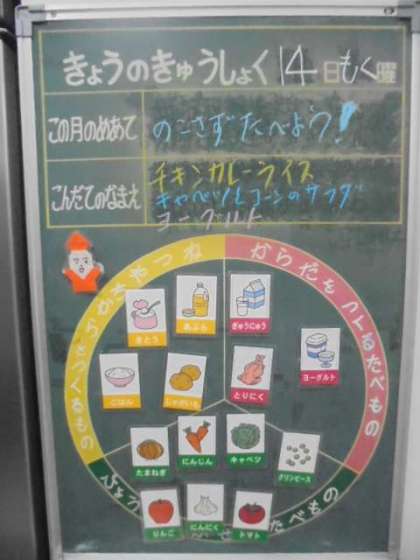 きょうのきゅうしょく 14日もく曜
この月のめあて のこさずたべよう!
こんだてのなまえ チキンカレーライス
キャベツとコーンのサラダ
ヨーグルト
からだをつくるたべもの
さとう
あぶら
ぎゅうにゅう
ヨーグルト
ごはん
じゃがいも
とりにく
たまねぎ
にんじん
キャベツ
グリンピース
りんご
にんにく
トマト
たべもの